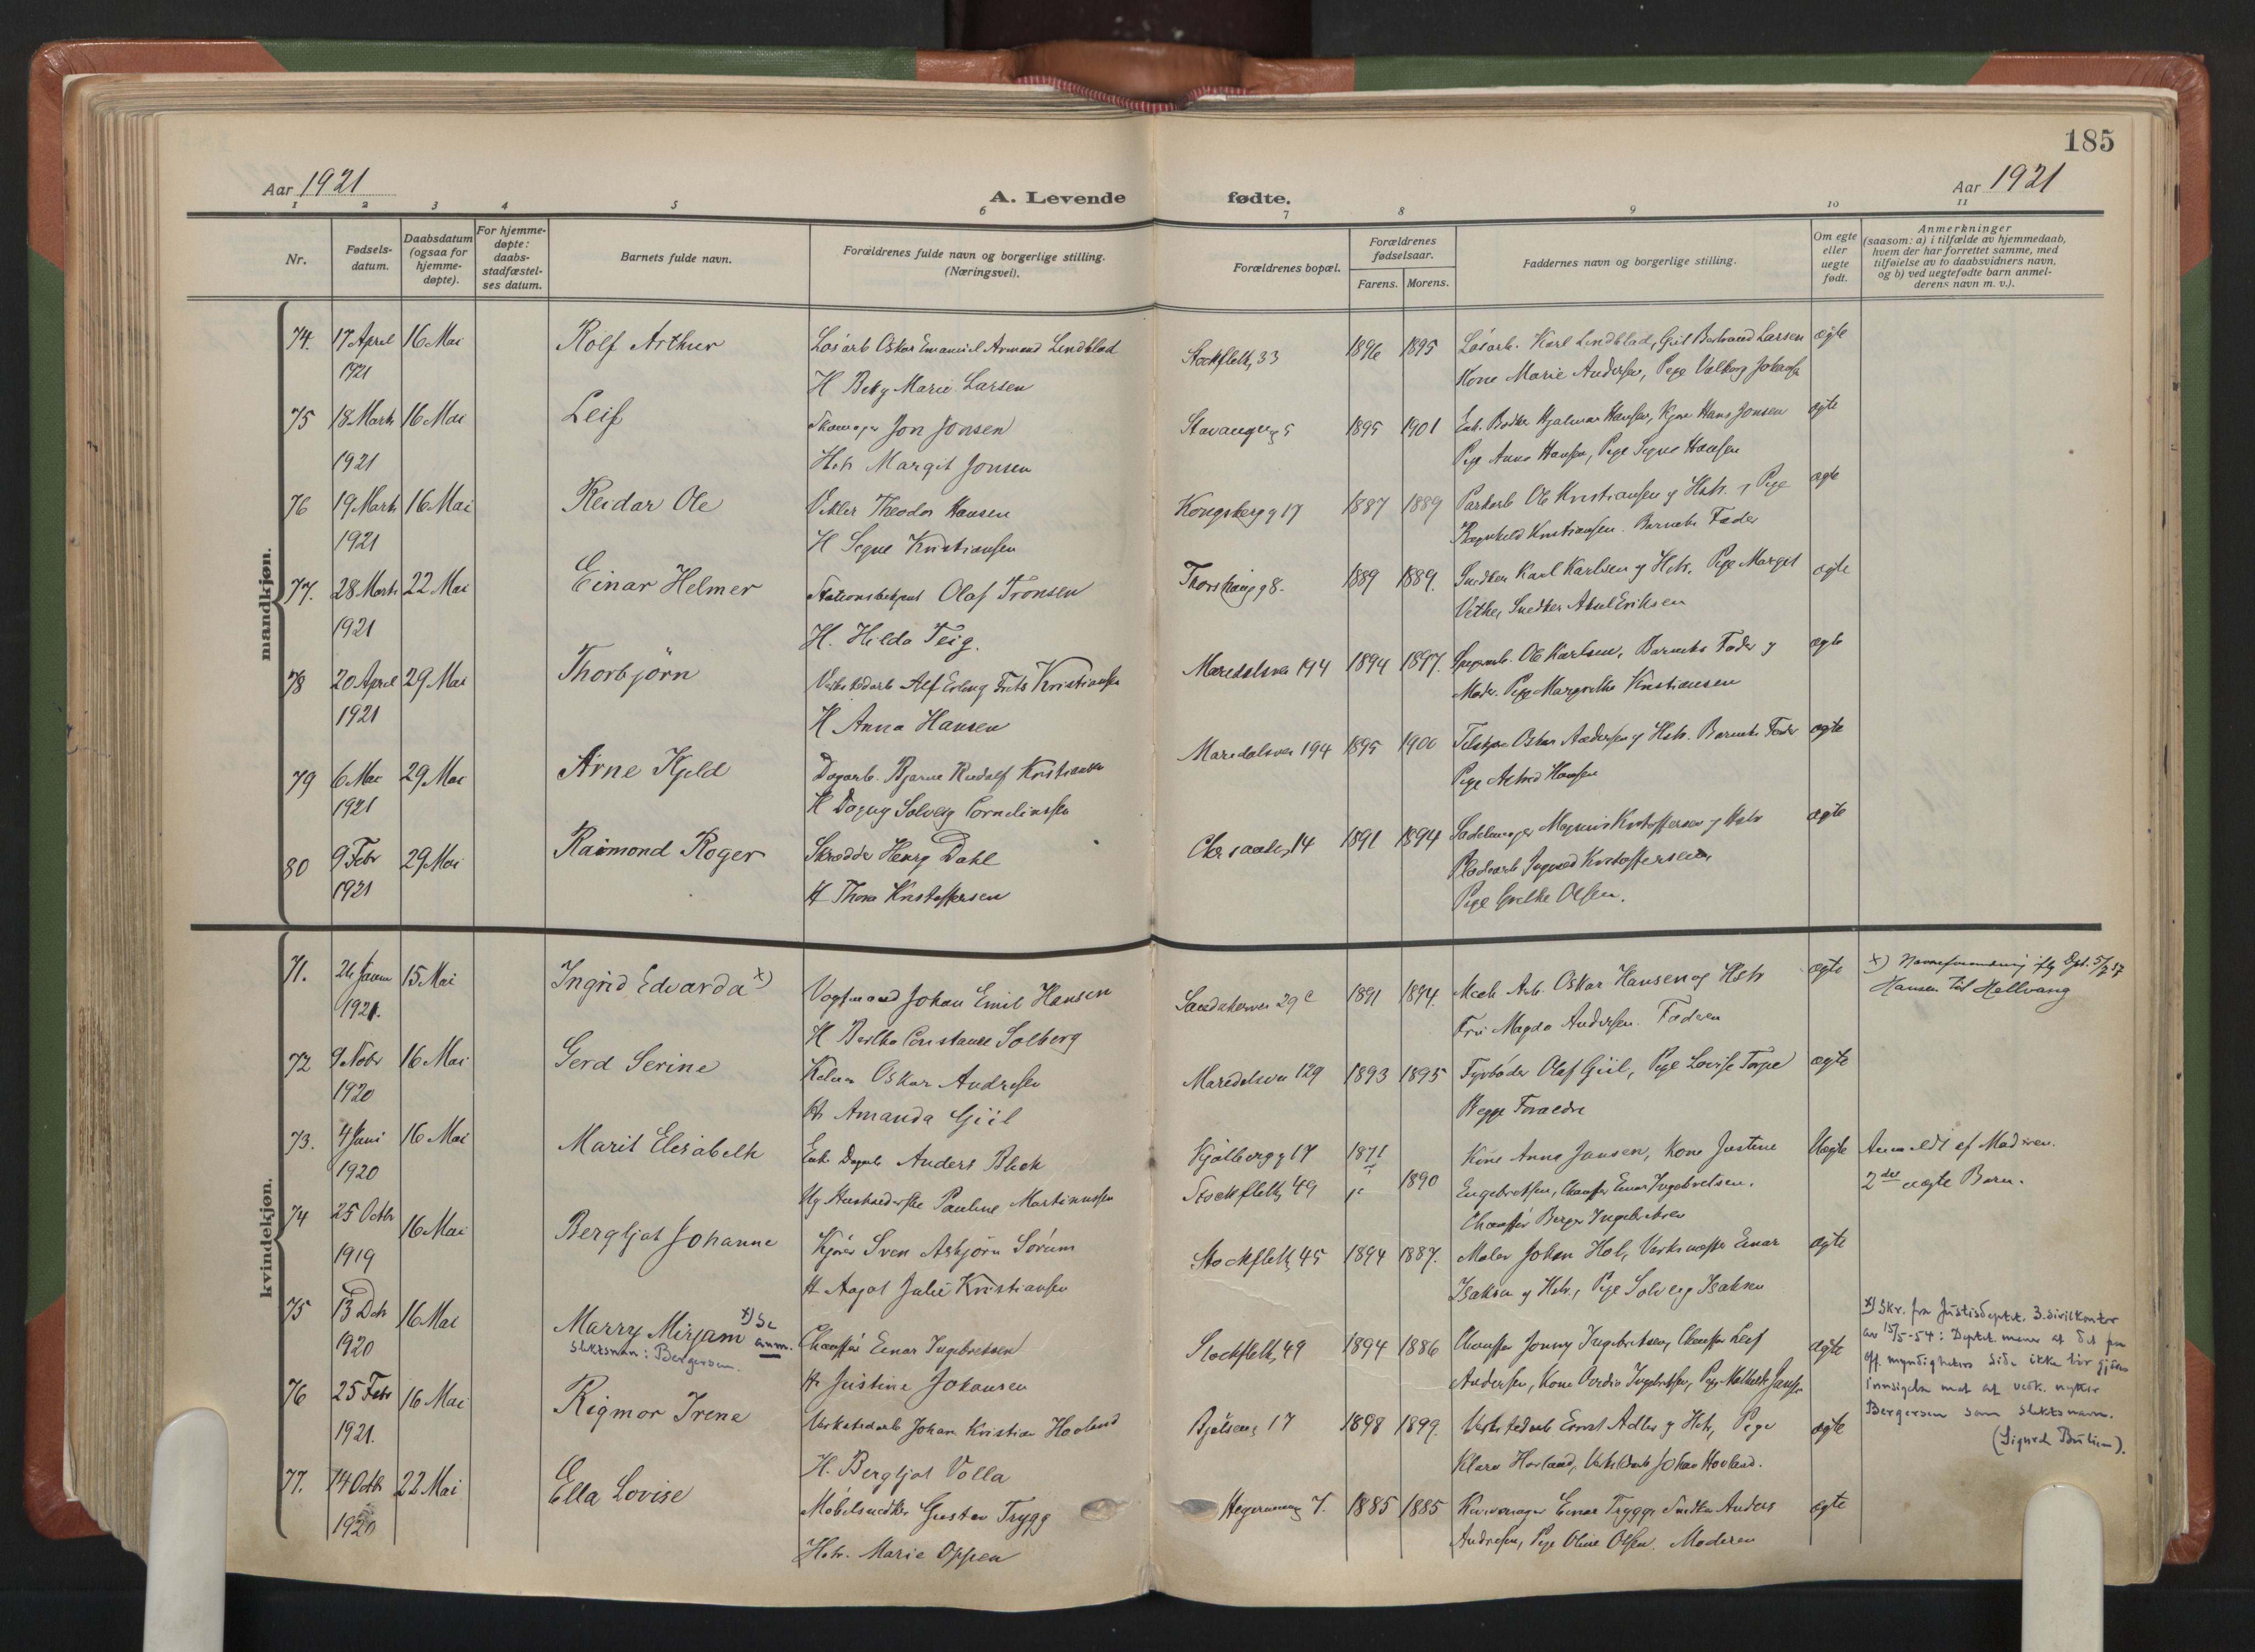 185
Aar 1921
A. Levende fødte.
Aar 1921
1 2 3 4 5 6 7 8 9 10 11
Nr.
Fødsels-
datum.
Daabsdatum
(ogsaa for
hjemme-
døpte).
For hjemme-
døpte:
daabs-
stadfæstel-
ses datum.
Barnets fulde navn.
Forældrenes fulde navn og borgerlige stilling.
(Næringsvei).
Forældrenes bopæl.
Forældrenes
fødselsaar.
Farens. Morens.
Faddernes navn og borgerlige stilling.
Om egte
eller
uegte
født.
Anmerkninger
(saasom: a) i tilfælde av hjemmedaab,
hvem der har forrettet samme, med
tilføielse av to daabsvidners navn,
og b) ved uegtefødte barn anmel-
derens navn m. v.).
mandkjøn.
74. 17 April 16 Mai Rolf Arthur Løsarb Oskar Emanuel Armand Lendblad Stockflethg 33 1896 1895 Løsarb. Karl Lindblad, Bertrand Larsen ægte
1921 H Marie Larsen Kone Marie Andersen, Pige Valborg
75 18 Marts 16 Mai Leif Jon Jonsen Stavangerg 5 1895 1901 Hjalmar Hansen, Hans Jonsen ægte
1921 Hstr Margit Jonsen Pige Anna Hansen, Pige Signe Hansen
76 19 Marts 16 Mai Reidar Ole Theodor Hansen Kongsbergg 17 1887 1889 Ole Kristiansen og Hstr., Pige ægte
1921 H Signe Kristiansen Ragnhild Kristiansen. Barnets Fader
77. 28 Marts 22 Mai Einar Helmer Olaf Tronsen Thorshaugg 8. 1889 1889. Snedker Karl Karlsen og Hstr. Pige Margit ægte
1921 H. Hilda Teig. Snedker Eriksen
78 20 April 29 Mai Thorbjörn Alf Erling Kristiansen Maredalsvei 194 1894 1897. Ole Karlsen, Barnets Fader og ægte
1921 H Anna Hansen Moder. Pige Margrethe Kristiansen
79 6 Mai 29 Mai Arne Kjeld Dagarb. Bjarne Rudolf Kristiansen Maredalsvei 194 1895 1900 Oskar Andersen og Hstr. Barnets Fader ægte
1921 H Dagny Solveig Corneliussen Pige Hansen
80 9 Febr 29 Mai Raimond Roger Skrædder Henry Dahl 14 1891 1894 Sadelmager Magnus Kristoffersen og Hstr ægte
1921 H Thora Kristoffersen Kristoffersen
Pige Grethe Olsen.
kvindekjøn.
71. 26 Januar 15 Mai Ingrid Edvarda x) Vognmand Johan Emil Hansen Sandakerveien 29 c 1891 1894. Mek Arb. Oskar Hansen og Hstr ægte x) Navneforandring iflg Dpt. 5/7 27
1921. H Constanse Solberg Fru Magda Andersen. Faderen Hansen til Hellvang
72 9 Nobr 16 Mai Gerd Serine Oskar Andresen Maredalsvei 129 1893 1895 Fyrbøder Olaf Giil, Pige Lovise Torpe ægte
1920 H Amanda Giil Begge Forældre
73. 4 Juni 16 Mai Marit Elisabeth Anders Kjølbergg 17 1871 Kone Anna Jansen, Kone Justine Uægte Anmeldt af Moderen.
1920 Pauline Martinussen Stockflethg 49 1890 Engebretsen, Chauffør Einar Ingebretsen. 2det uægte Barn.
Chauffør Berger Ingebretsen
74 25 Octbr 16 Mai Bergljot Johanne Kjører Sven Asbjørn Sørum Stockflethg 45 1894 1887. Maler Johan Hol, Einar ægte
1919 H Aagot Julie Kristiansen Isaksen og Hstr., Pige Solveig Isaksen
75 13 Dcb 16 Mai Marry Mirjam x) Se anm. Chauffør Einar Ingebretsen Stockflethg 49 1894 1886 Chauffør Jonny Ingebretsen, Chauffør Leif ægte
1920 Slektsnavn: Bergersen. H Justine Johansen Andersen, Kone Ingebretsen, Pige Jansen
x) Skr. fra Justisdeptet. 3. sivilkontor
av 15/5-54: Deptet. mener at det fra
off. myndigheters side ikke bør gjøres
innsigelse mot at vedk. nytter
Bergersen som slektsnavn.
(Sigurd).
76 25 Febr 16 Mai Rigmor Irene Verkstedarb Johan Kristian Hovland 17 1898 1899. Verkstedarb Ernst Adler og Hstr, Pige ægte
1921. H. Bergljot Volla Klara Hovland, Johan Hovland.
77. 14 Octbr 22 Mai Ella Lovise Møbelsnedker Gustav Trygg 7. 1885 1885 Einar Trygg, Snedker Anders ægte
1920 Hstr. Marie Oppen Andresen, Pige Oline Olsen. Moderen